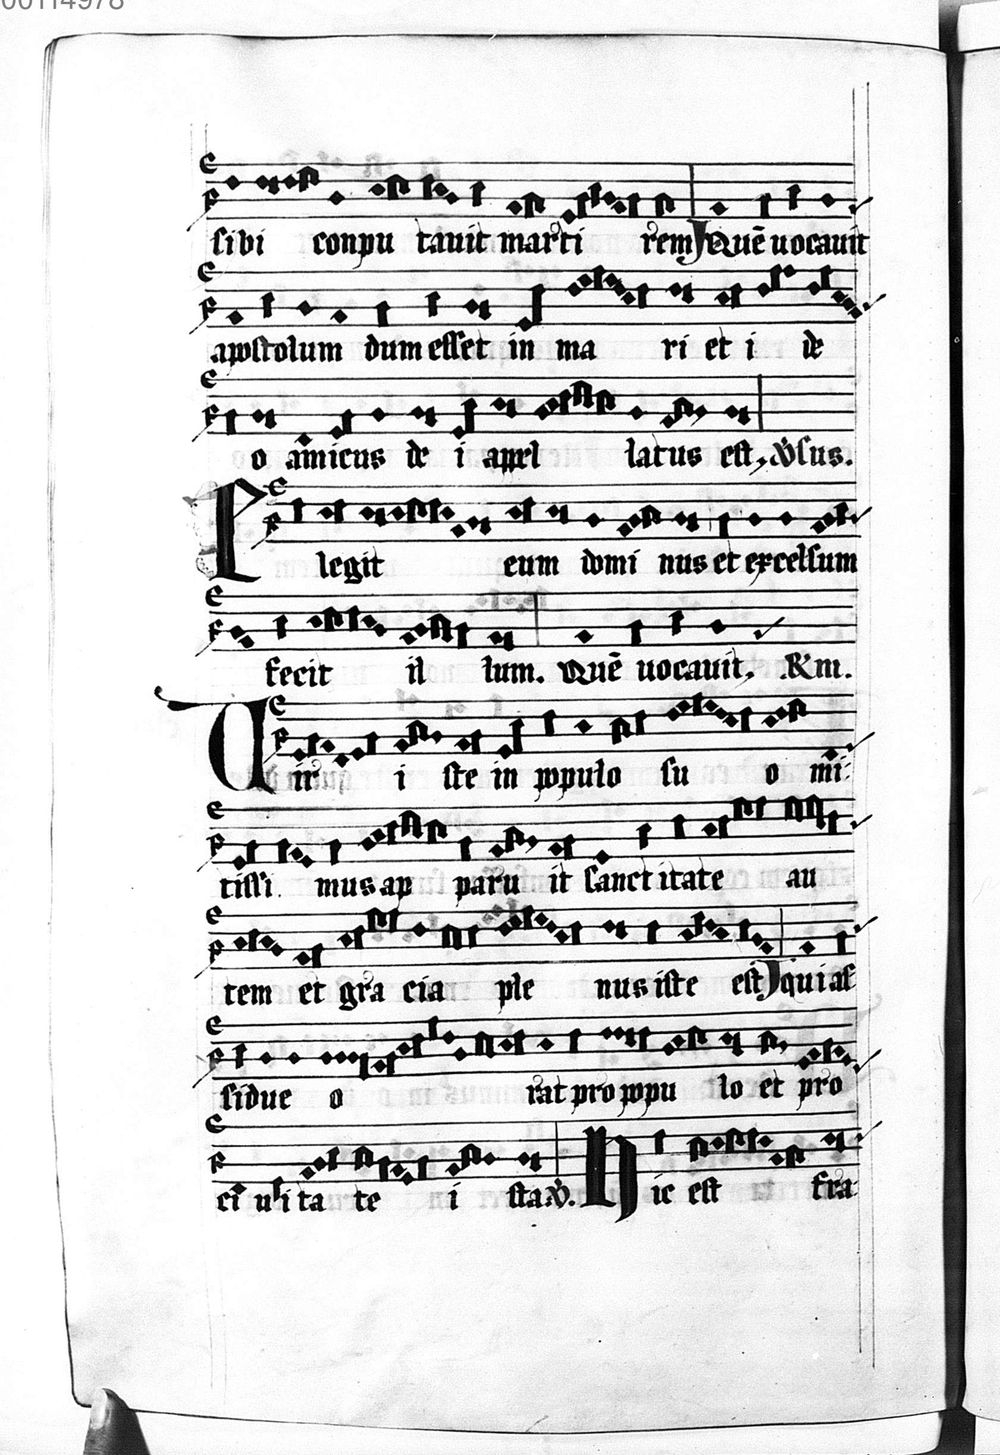 00114978
sibi conpu tauit marti rem Quē uocauit
apostolum dum esset in ma ri et i de
o amicus de i apel latus est, v̇sus.
E legit eum domi nus et excelsum
fecit il lum. Quē uocauit, R̃m.
Uir i ste in populo su o mi
tissi mus ap paru it sanctitate au
tem et gra cia ple nus iste est quia as
sidue o rat pro popu lo et pro
ci ui ta te i sta. v̇. Hic est fra